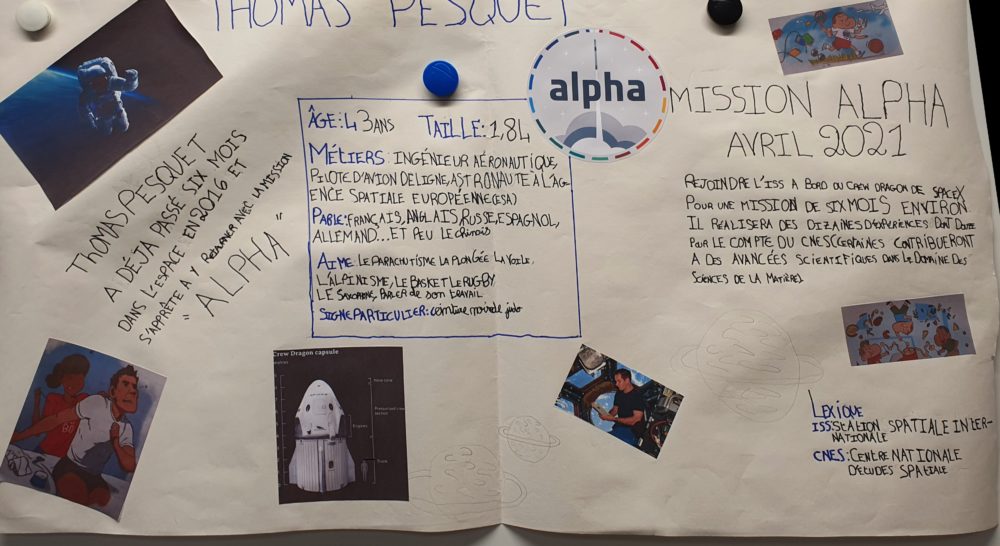 THOMAS PESQUET
THOMAS PESQUET
A DÉJA PASSÉ SIX MOIS
DANS L'ESPACE EN 2016 ET
S'APPRÊTE A Y RETOURNER AVEC LA MISSION
" ALPHA "
ÂGE: 43 ANS TAILLE: 1,84
MÉTIERS: INGÉNIEUR AÉRONAUTIQUE,
PILOTE D'AVION DE LIGNE, ASTRONAUTE À L'AG-
ENCE SPATIALE EUROPÉENNE (ESA)
PARLE: FRANÇAIS, ANGLAIS, RUSSE, ESPAGNOL,
ALLEMAND... ET PEU LE chinois
AIME: LE PARACHUTISME LA PLONGÉE LA VOILE,
L'ALPINISME, LE BASKET LE RUGBY
LE SAXOPHONE, PARLER de son travail
SIGNE PARTICULIER: ceinture noire de judo
alpha
MISSION ALPHA
AVRIL 2021
REJOINDRE L'ISS A BORD DU CREW DRAGON DE SPACEX
POUR UNE MISSION DE SIX MOIS ENVIRON.
IL RÉALISERA DES DIZAINES D'EXPÉRIENCES DONT DOUZE
POUR LE COMPTE DU CNES CERTAINES CONTRIBUERONT
A DES AVANCÉES SCIENTIFIQUES DANS LE DOMAINE DES
SCIENCES DE LA MATIÈRE.
Crew Dragon capsule
Nose cone
Engines
Trunk
LEXIQUE
ISS: STATION SPATIALE INTER-
NATIONALE
CNES: CENTRE NATIONALE
D'ETUDES SPATIALE